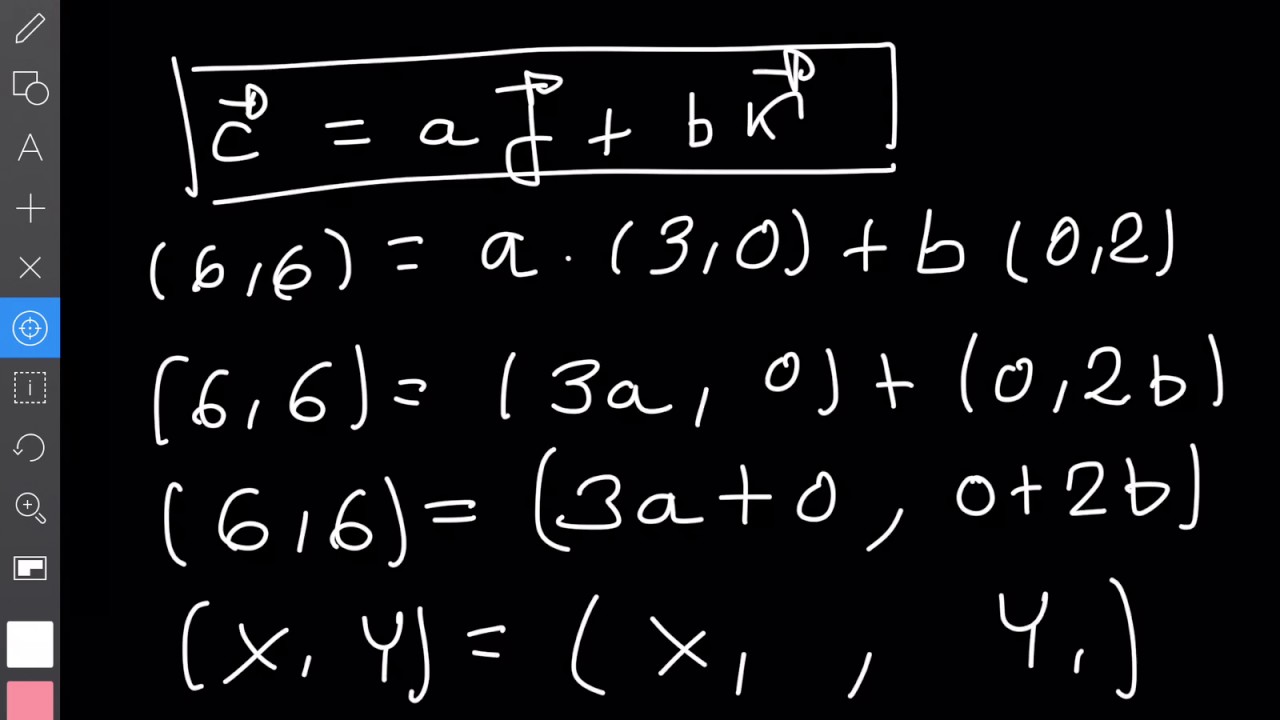 c⃗ = a j⃗ + b k⃗
(6,6) = a . (3,0) + b (0,2)
(6,6) = (3a, 0) + (0,2b)
(6,6) = (3a+0, 0+2b)
(x, y) = (x₁, y₁)